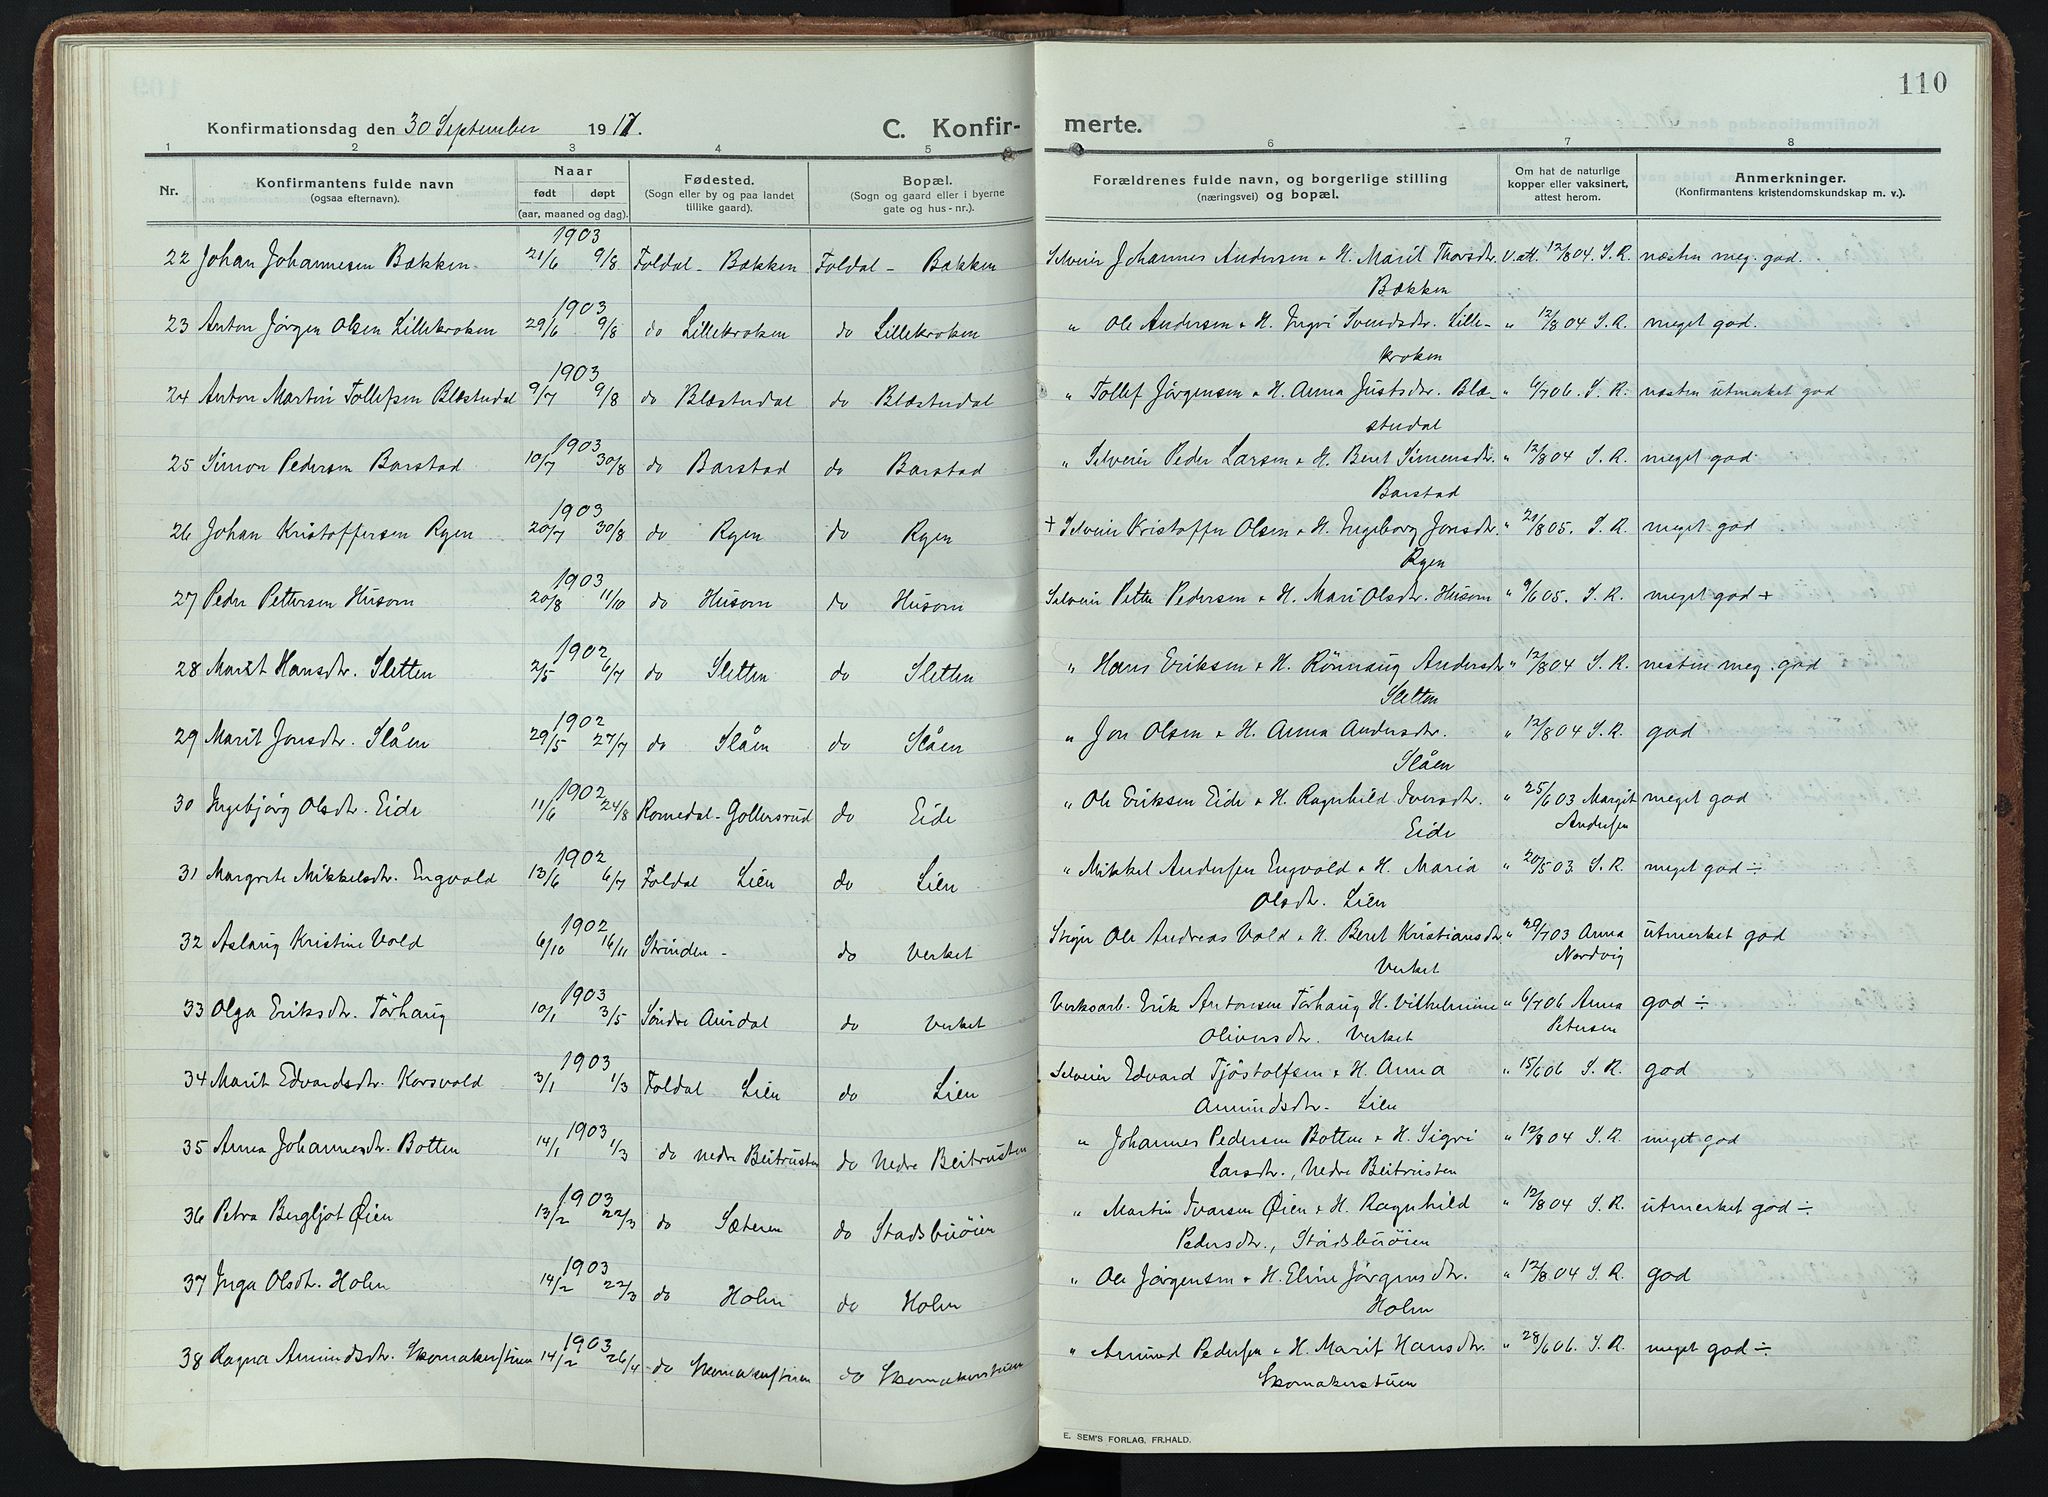 110
Konfirmationsdag den 30 September 1917.
C. Konfirmerte.
1 2 3 4 5 6 7 8
Nr. Konfirmantens fulde navn (ogsaa efternavn). Naar født døpt (aar, maaned og dag). Fødested. (Sogn eller by og paa landet tillike gaard). Bopæl. (Sogn og gaard eller i byerne gate og hus-nr.). Forældrenes fulde navn, og borgerlige stilling (næringsvei) og bopæl. Om hat de naturlige kopper eller vaksinert, attest herom. Anmerkninger. (Konfirmantens kristendomskundskap m. v.).
1903
22 Johan Johannesen Bækken. 21/6 9/8 Foldal - Bækken Foldal - Bækken Selveier Johannes Andersen & H. Marit Thorsdtr. V. att. 12/8 04 S. R. næsten meg. god.
Bækken
1903
23 Anton Jørgen Olsen Lillekroken 29/6 9/8 do Lillekroken do Lillekroken " Ole Andersen & H. Ingri Svendsdtr. Lille- " 12/8 04 S. R. meget god.
kroken
1903
24 Anton Martin Tollefsen Blæstudal 9/7 9/8 do Blæstudal do Blæstudal " Tollef Jørgensen & H. Anna Justsdtr. Blæ- " 6/7 06. S. R. næsten utmerket god
studal
1903
25 Simon Pedersen Barstad 10/7 30/8 do Barstad do Barstad " Selveier Peder Larsen & H. Beret Simensdtr. " 12/8 04 S. R. meget god
Barstad
1903
26 Johan Kristoffersen Ryen 20/7 30/8 do Ryen do Ryen + Selveier Kristoffer Olsen & H. Ingeborg Jonsdtr. " 21/8 05. S. R. meget god
Ryen
1903
27 Peder Pettersen Husom 20/8 11/10 do Husom do Husom Selveier Petter Pedersen & H. Mari Olsdtr. Husom " 9/6 05. S. R. meget god +
1902
28 Marit Hansdtr. Sletten 2/5 6/7 do Sletten do Sletten " Hans Eriksen & H. Rønnaug Andersdtr " 12/8 04 S. R. nesten meg. god
Sletten
1902
29 Marit Jonsdtr. Slåen 29/5 27/7 do Slåen do Slåen " Jon Olsen & H. Anna Andersdtr. " 12/8 04 S. R. god
Slåen
1902
30 Ingebjørg Olsdtr. Eide 11/6 24/8 Romedal - Gollersrud do Eide " Ole Eriksen Eide & H. Ragnhild Iversdtr. " 25/6 03 Margit meget god
Eide Andersen
1902
31 Margrete Mikkelsdtr. Engvold 13/6 6/7 Foldal Lien do Lien " Mikkel Andersen Engvold & H. Maria " 20/5 03. S. R. meget god ÷
Olsdtr. Lien
1902
32 Aslaug Kristine Vold 6/10 16/11 Strinden - do Verket Stiger Ole Andreas Vold & H. Beret Kristiansdtr " 29/7 03 Anna utmerket god
Verket Nordvig
1903
33 Olga Eriksdtr. Tørhaug 10/1 3/5 Søndre Aurdal do Verket Verksarb. Erik Antonsen Tørhaug H. Vilhelmine " 6/7 06 Anna god ÷
Oliversdtr. Verket Petersen
1903
34 Marit Edvardsdtr. Korsvold 3/1 1/3 Foldal Lien do Lien Selveier Edvard Tjøstolfsen & H. Anna " 15/6 06 S. R. god
Amundsdtr. Lien
1903
35 Anna Johannesdtr. Botten 14/1 1/3 do nedre Beitrusten do Nedre Beitrusten " Johannes Pedersen Botten & H. Sigri " 12/8 04 S. R. meget god
Larsdtr., Nedre Beitrusten
1903
36 Petra Bergljot Øien 13/2 22/3 do Sæteren do Stadsbuøien " Martin Ivarsen Øien & H. Ragnhild " 12/8 04 S. R. utmerket god ÷
Pedersdtr., Stadsbuøien
1903
37 Inga Olsdtr. Holm 14/2 22/3 do Holm do Holm " Ole Jørgensen & H. Eline Jørgensdtr. " 12/8 04 S. R. god
Holm
1903
38 Ragna Amundsdtr. Skomakerstuen 14/2 26/4 do Skomakerstuen do Skomakerstuen " Amund Pedersen & H. Marit Hansdtr. " 28/6 06. S. R. meget god ÷
Skomakerstuen
E. SEM'S FORLAG, FR.HALD.